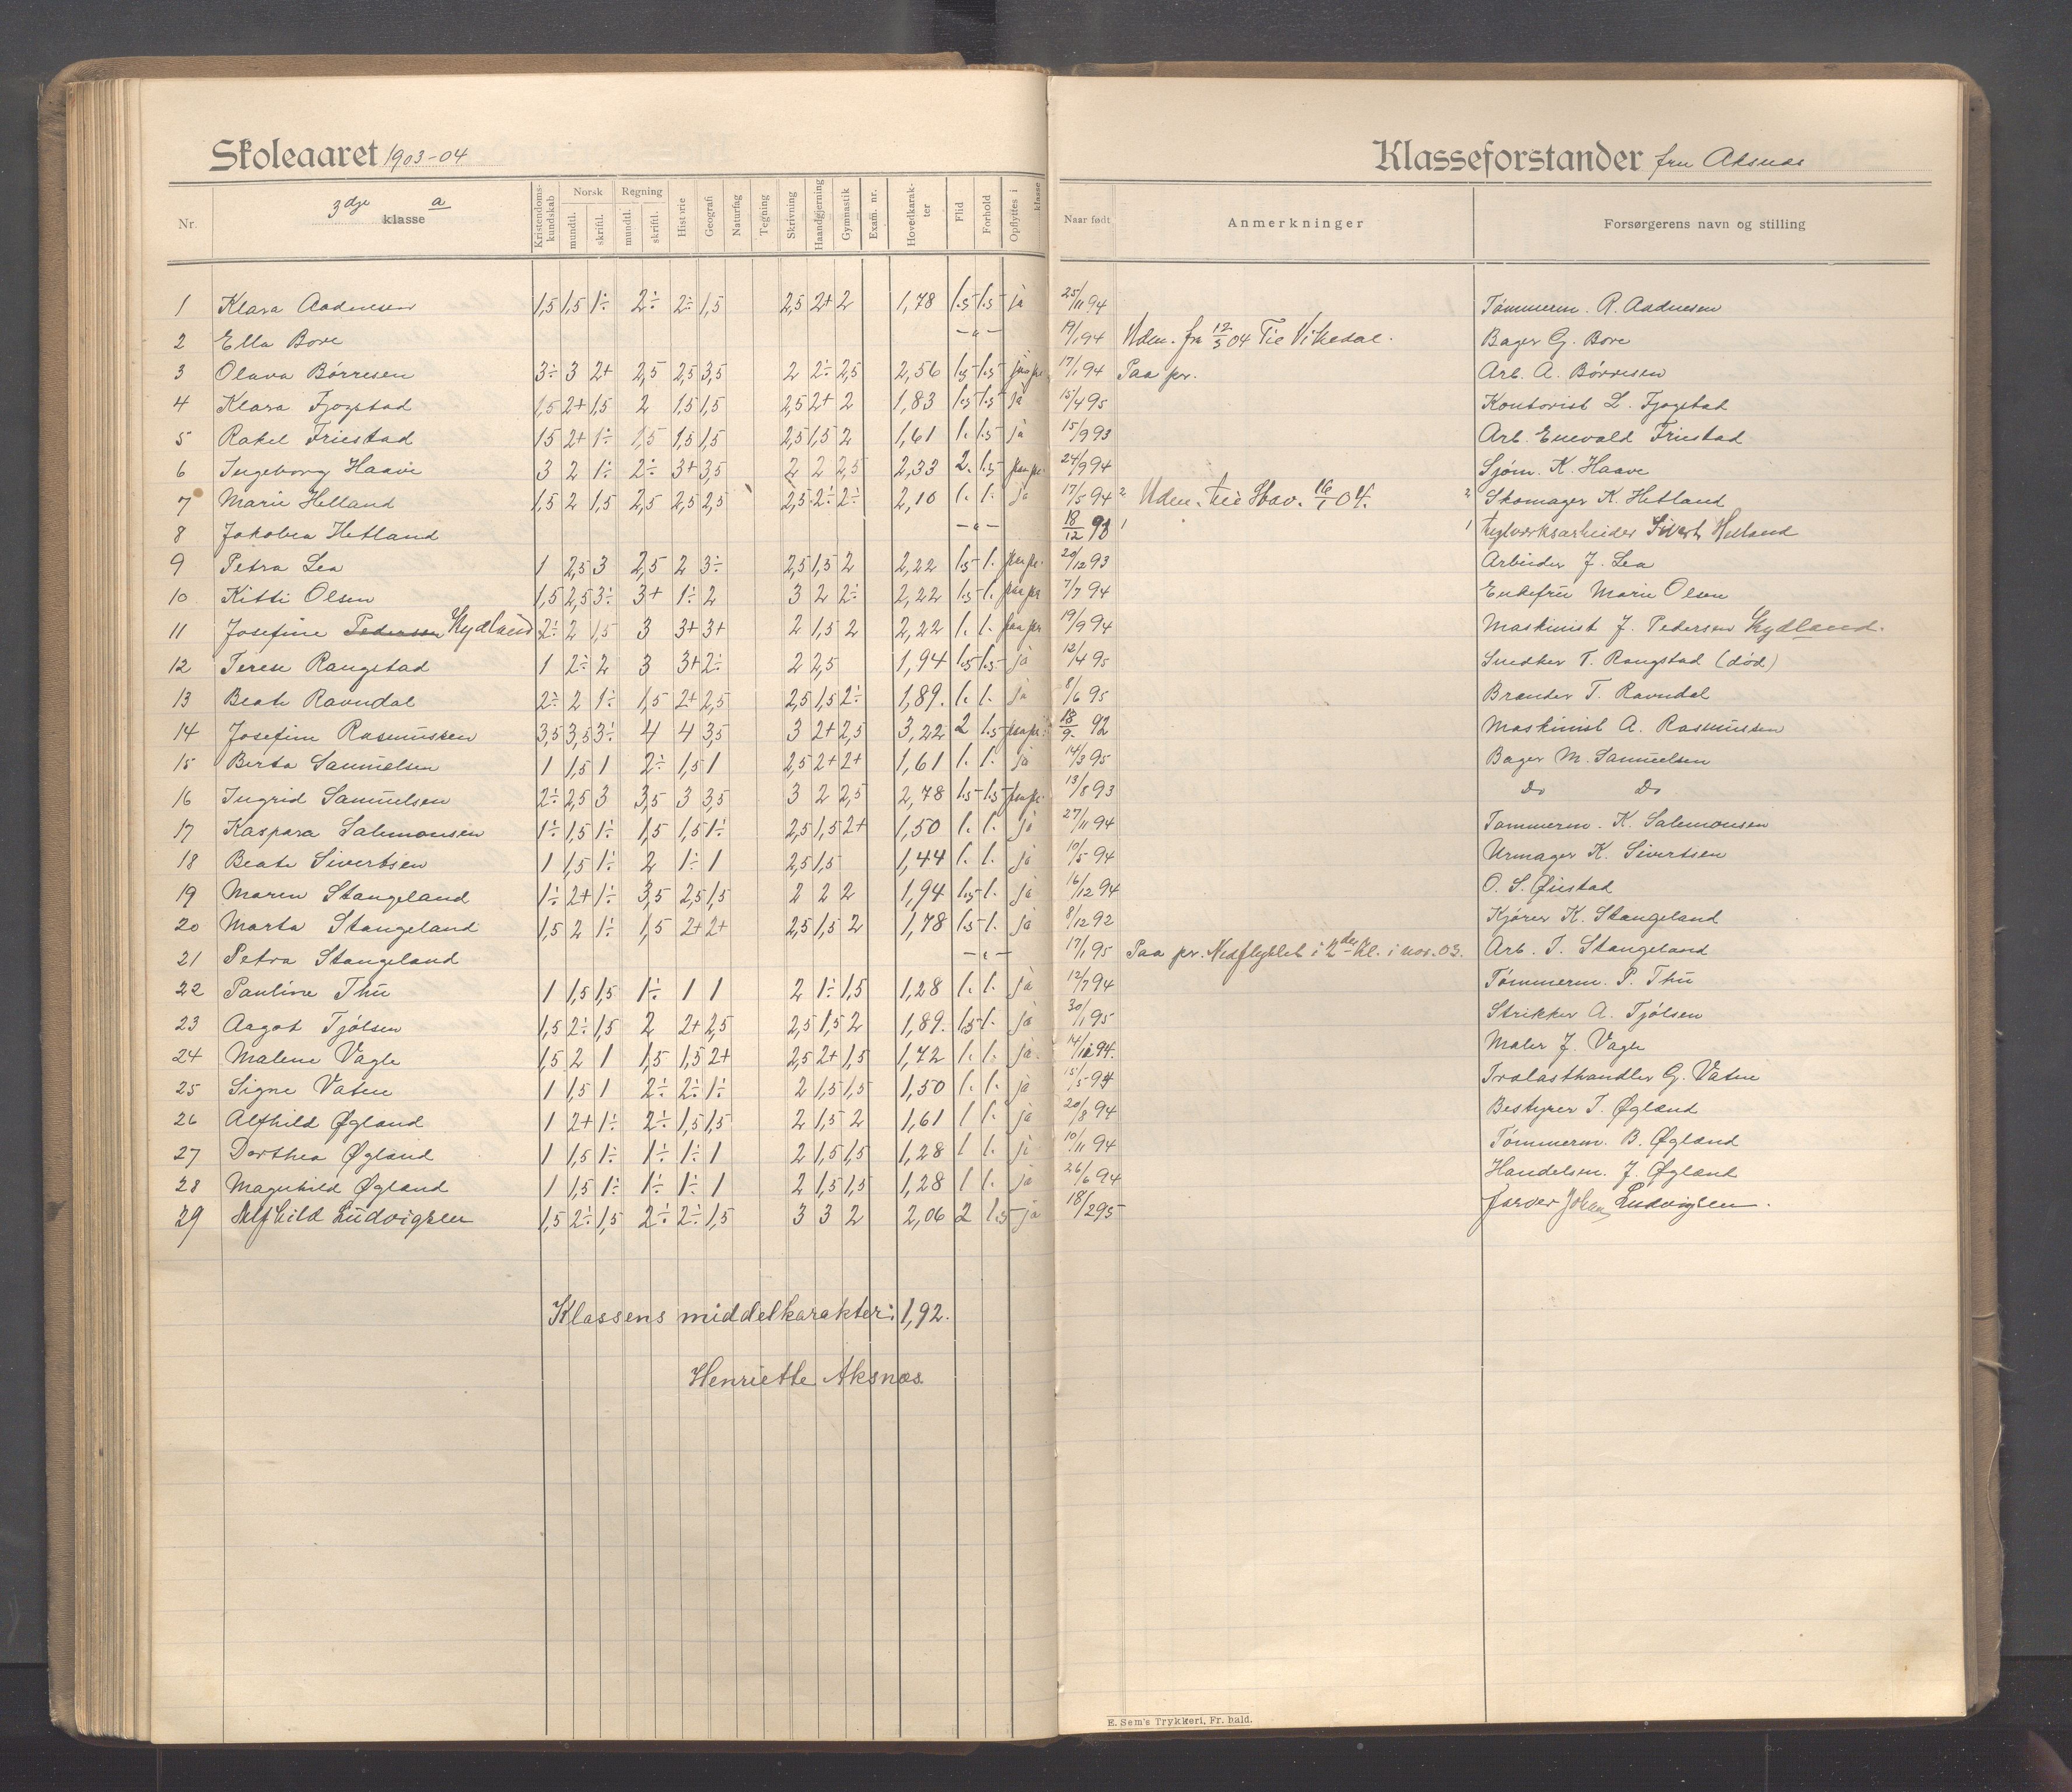 Skoleaaret 1903-04
Klasseforstander fru Aksnæs
Nr. 3dje klasse a Kristendoms-kundskab Norsk mundtl. skriftl. Regning mundtl. skriftl. Historie Geografi Naturfag Tegning Skrivning Haandgjerning Gymnastik Exam. nr. Hovedkarak-ter Flid Forhold Opflyttes i klasse Naar født Anmerkninger Forsørgerens navn og stilling
1 Klara Aadnesen 1,5 1,5 1÷ 2÷ 2÷ 1,5 2,5 2+ 2 1,78 1.5 1.5 ja 25/11 94 Tømmerm. R. Aadnesen
2 Ella Bore -"- 19/1 94 Uden. fra 12/5 04 Til Vikedal. Bager G. Bore
3 Olava Børresen 3÷ 3 2+ 2,5 2,5 3,5 2 2÷ 2,5 2,56 1.5 1.5 17/1 94 Paa pr. Arb. A. Børresen
4 Klara Fjogstad 1,5 2+ 1,5 2 1,5 1,5 2,5 2+ 2 1,83 1.5 1.5 ja 15/4 95 Kontorist L. Fjogstad
5 Rakel Friestad 1,5 2+ 1÷ 1,5 1,5 1,5 2,5 1,5 2 1,61 1. 1.5 ja 15/9 93 Arb. Enevald Friestad
6 Ingeborg Haave 3 2 1÷ 2÷ 3+ 3,5 2 2 2,5 2,33 2. 1.5 paa pr. 24/9 94 Sjøm. K. Haave
7 Marie Helland 1,5 2 1,5 2,5 2,5 2,5 2,5 2÷ 2÷ 2,10 1. 1. ja 17/5 94 2 Uden. til Hav. 16/1 04. 2 Skomager K. Hetland
8 Jakobea Hetland -"- 18/12 93 1 1 teglverksarbeider Sivert Hetland
9 Petra Lea 1 2,5 3 2,5 2 3÷ 2,5 1,5 2 2,22 1.5 1. paa pr. 20/12 93 Arbeider J. Lea
10 Kitti Olsen 1,5 2,5 3÷ 3+ 1÷ 2 3 2 2÷ 2,22 1.5 1. paa pr 7/7 94 Enkefru Marie Olsen
11 Josefine Pedersen Kydland 2÷ 2 1,5 3 3+ 3+ 2 1,5 2 2,22 1. 1. paa pr 19/9 94 Maskinist J. Pedersen Kydland.
12 Terese Rangstad 1 2÷ 2 3 3+ 2÷ 2 2,5 1,94 1.5 1.5 ja 12/4 95 Snedker T. Rangstad (død)
13 Beate Ravndal 2÷ 2 1÷ 1,5 2+ 2,5 2,5 1,5 2÷ 1,89. 1. 1. ja 8/6 95 Brænder T. Ravndal
14 Josefine Rasmussen 3,5 3,5 3÷ 4 4 3,5 3 2+ 2,5 3,22 2 1.5 paa pr. 18/9 92 Maskinist A. Rasmussen
15 Berta Samuelsen 1 1,5 1 2÷ 1,5 1 2,5 2+ 2+ 1,61 1. 1. ja 14/3 95 Bager M. Samuelsen
16 Ingrid Samuelsen 2÷ 2,5 3 3,5 3 3,5 3 2 2,5 2,78 1.5 1.5 paa pr. 13/8 93 Do Do
17 Kaspara Salemonsen 1÷ 1,5 1÷ 1,5 1,5 1÷ 2,5 1,5 2+ 1,50 1. 1. ja 27/11 94 Tømmerm. K. Salemonsen
18 Beate Sivertsen 1 1,5 1÷ 2 1÷ 1 2,5 1,5 1,44 1. 1. ja 10/5 94 Urmager K. Sivertsen
19 Maren Stangeland 1÷ 2+ 1÷ 3,5 2,5 1,5 2 2 2 1,94 1.5 1. ja 16/12 94 O. S. Øiestad
20 Marta Stangeland 1,5 2 1÷ 1,5 2+ 2+ 2,5 1,5 2 1,78 1.5 1. ja 8/12 92 Kjører K. Stangeland
21 Petra Stangeland -"- 17/1 95 Paa pr. Nedflyttet i 2den kl. i nov. 03. Arb. T. Stangeland
22 Pauline Thu 1 1,5 1,5 1÷ 1 1 2 1÷ 1,5 1,28 1. 1. ja 12/7 94 Tømmerm. P. Thu
23 Aagot Tjølsen 1,5 2÷ 1,5 2 2+ 2,5 2,5 1,5 2 1,89. 1.5 1. ja 30/1 95 Strikker A. Tjølsen
24 Malene Vagle 1,5 2 1 1,5 1,5 2+ 2,5 2+ 1,5 1,72 1. 1. ja 14/12 94. Maler J. Vagle
25 Signe Vatne 1 1,5 1 2÷ 2÷ 1÷ 2 1,5 1,5 1,50 1. 1. ja 15/5 94 Trælasthandler G. Vatne
26 Alfhild Øgland 1 2+ 1÷ 2÷ 1,5 1,5 2 1,5 2 1,61 1 1. ja 20/8 94 Bestyrer T. Øgland
27 Dorthea Øgland 1 1,5 1÷ 1÷ 1÷ 1 2 1,5 1,5 1,28 1 1. ja 10/11 94 Tømmerm. B. Øgland
28 Magnhild Øgland 1 1,5 1÷ 1÷ 1÷ 1 2 1,5 1,5 1,28 1 1. ja 26/6 94 Handelsm. J. Øgland
29 Alfhild Ludvigsen 1,5 2÷ 1,5 2÷ 2÷ 1,5 3 3 2 2,06 2 1.5 ja 18/2 95 Farver Johan Ludvigsen.
Klassens middelkarakter: 1,92.
Henriette Aksnæs
E. Sem's Trykkeri, Fr. hald.